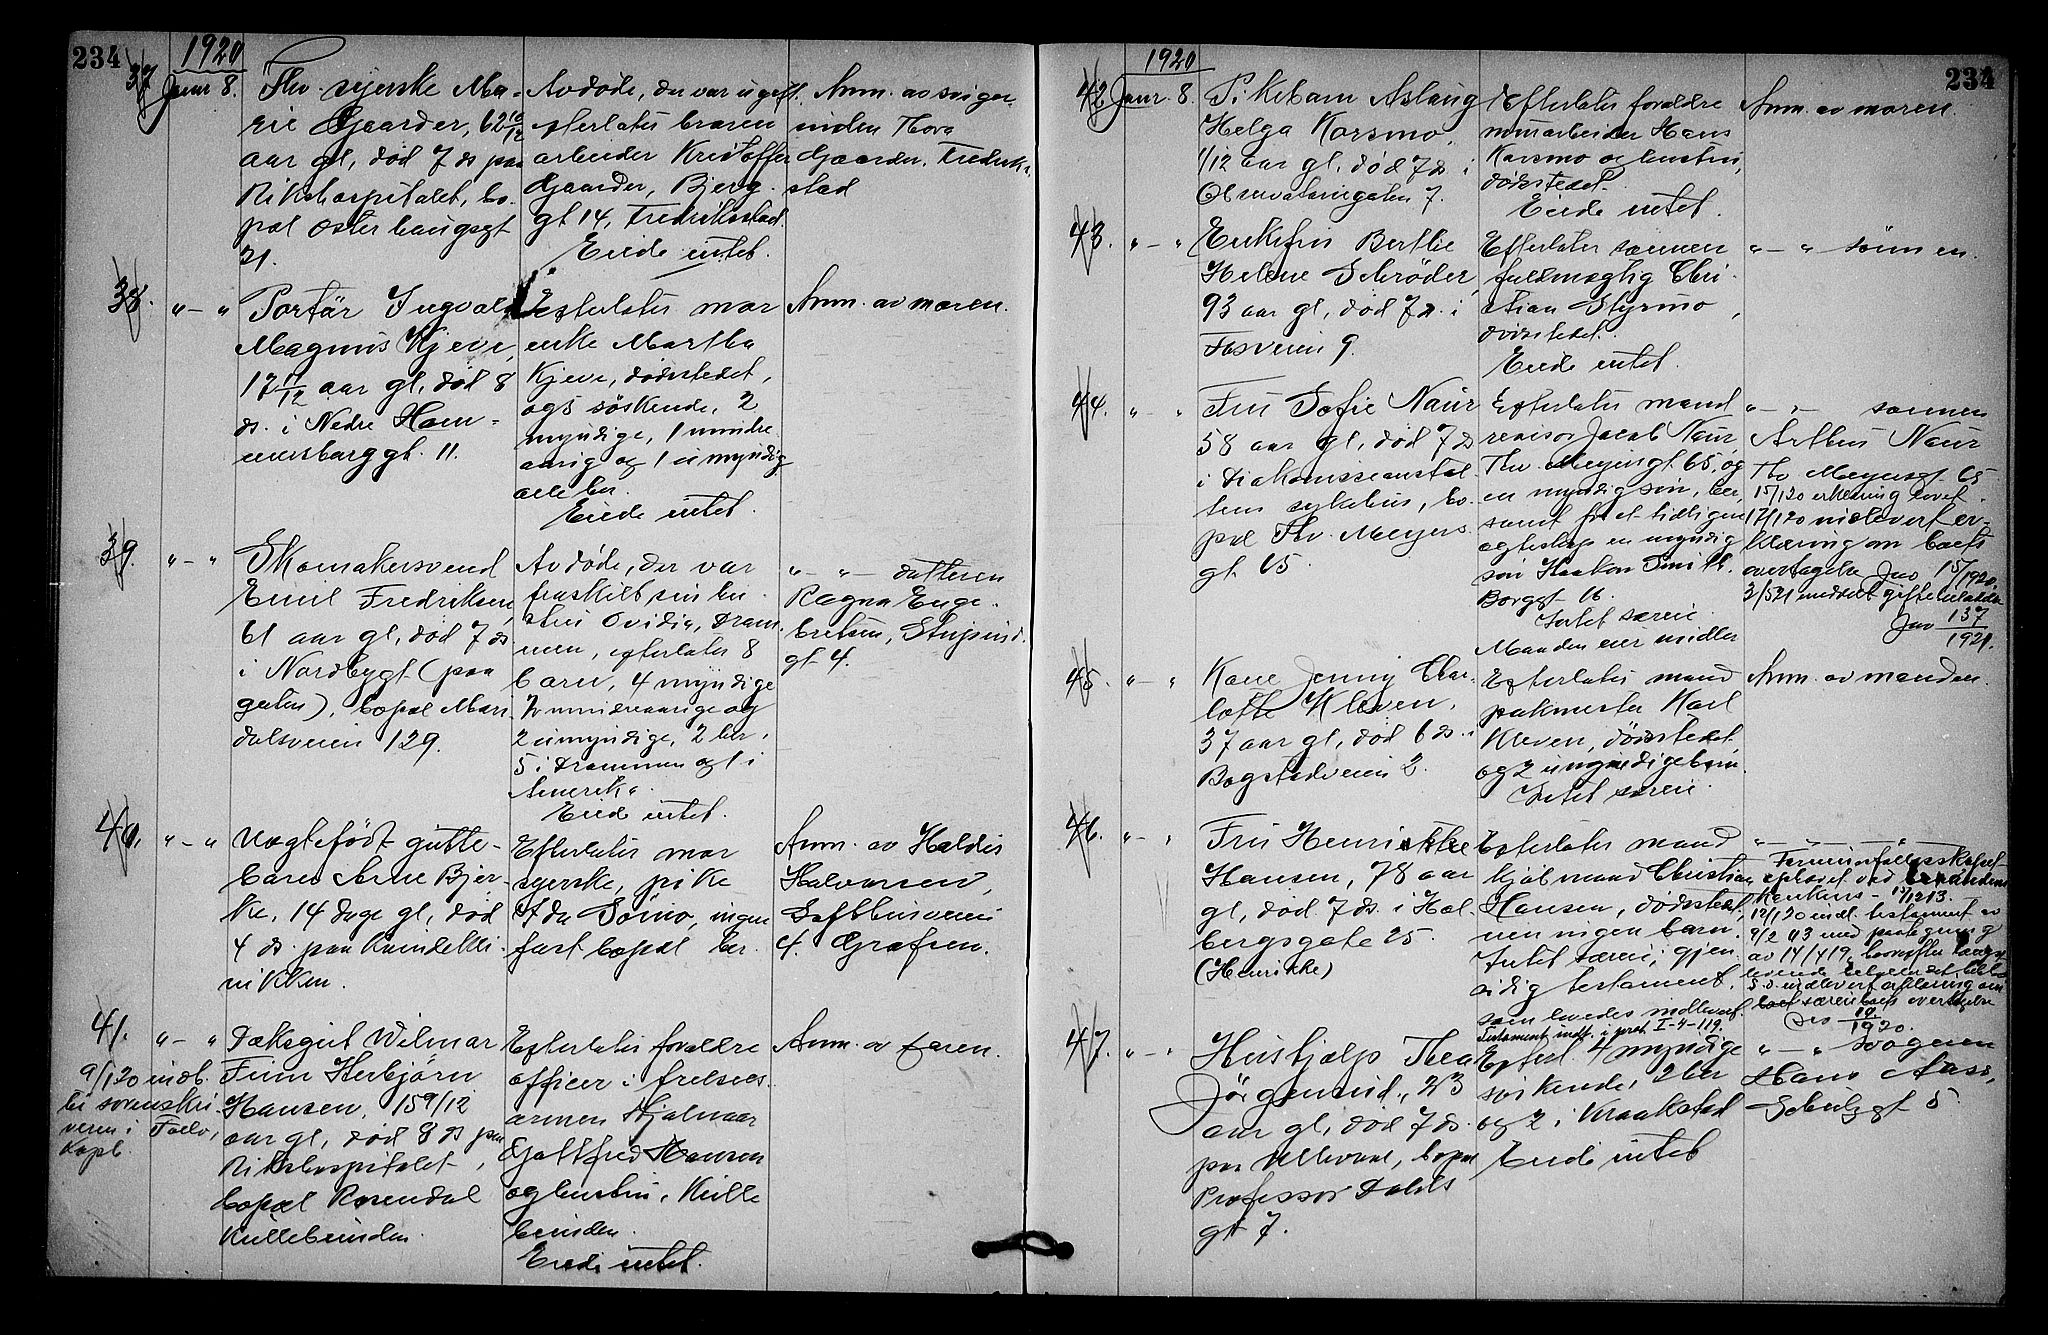 234
1920
37
Januar 8.
Fhv. syerske Ma-
rie Gaarder, 62 10/12
aar gl, död 7 ds paa
Rikshospitalet, bo-
pæl Österhaugsgt
31.
Avdöde, der var ugift,
efterlater broren
arbeider Kristoffer
Gaarder, Bjerg-
gt 14, Fredrikstad.
Eiede intet.
Anm. av sviger-
inden Thora
Gaarder, Fredrik-
stad
38.
" - "
Portör Ingvald
Magnus Kjeve,
17 11/12 aar gl, död 8
ds. i Nedre Ham-
mersborg gt. 11.
Efterlater mor
enke Martha
Kjeve, dödsstedet,
og 5 söskende, 2
myndige, 1 mindre
aarig og 1 umyndig
alle her.
Eiede intet.
Anm. av moren.
39.
" - "
Skomakersvend
Emil Fredriksen,
61 aar gl, död 7 ds
i Nordbygt (paa
gaten), bopæl Mari-
dalsveien 129.
Avdöde, der var
fraskilt sin hu-
stru Ovidia, Dram-
men, efterlater 8
barn, 4 myndige
2 mindreaarige og
2 umyndige, 2 her,
5 i Drammen og 1 i
Amerika.
Eiede intet.
" - " - datteren
Ragna Enge-
bretsen,
gt 4.
40.
" - "
Uegtefödt gutte-
barn Arne Bjer-
ke, 14 dage gl, död
4 ds paa Kvindekli-
nikken.
Efterlater mor
syerske, pike
ingen
fast bopæl her.
Anm. av Haldis
Halvorsen,
Lofthusveien
4. Grefsen.
41.
" - "
9/1 20 indb.
til sorenskri-
veren i Follo,
Kopb.
Dæksgut Wilmar
Finn Herbjörn
Hansen, 15 9/12
aar gl, död 8 ds paa
Rikshospitalet,
bopæl Rosendal
Kullebunden.
Efterlater forældre
officer i frelses-
armen Hjalmar
Gottfred Hansen
og hustru, Kulle
bunden.
Eiede intet.
Anm. av faren.
234
1920
42
Januar. 8.
Pikebarn Aslaug
Helga Korsmo,
1/12 aar gl, död 7 ds i
Observatoriegaten 7.
Efterlater forældre
murarbeider Hans
Korsmo og hustru,
dödsstedet.
Eiede intet.
Anm. av moren.
43.
" - "
Enkefru Berthe
Helene Schröder,
93 aar gl, död 7 ds. i
Fossveien 9.
Efterlater sönnen
fuldmægtig Chri-
stian Styrmo,
dödsstedet.
Eiede intet.
" - " sönnen.
44.
" - "
Fru Sofie Naur
58 aar gl, död 7 ds
i Diakonisseanstal-
tens sykehus, bo-
pæl Thv. Meyers
gt 65.
Efterlater mand
revisor Jacob Naur
Thv. Meyersgt 65, og
en myndig sön, her,
samt fra et tidligere
egteskap en myndig
sön Haakon Smith.
Borggt 16.
Intet særeie.
Manden eier midler
" - " - sönnen
Arthur Naur
Thv Meyersgt 65
15/1 20 erklæring lovet.
17/1 20 indlevert er-
klæring om boets
overtagelse Jno 15/1920.
3/5 21 meddelt giftetilladelse
Jno 137/1921.
45.
" - "
Kone Jenny Char-
lotte Kleven,
37 aar gl, död 6 ds. i
Bogstadveien 2.
Efterlater mand
pakmester Karl
Kleven, dödsstedet
og 2 umyndige barn.
Intet særeie.
Anm. av manden.
46.
" - "
Fru Henrikke
Hansen, 78 aar
gl, död 7 ds. i Hol-
bergsgate 25.
(Henrikke)
Efterlater mand
kjöbmand Christian
Hansen, dödsstedet,
men ingen barn.
Intet særeie, gjen-
sidig testament,
som loves indlevert
Testament indf. i prot. I-4-119.
" - " - "
Formuesfællesskapet
ophævet ved mandens
konkurs - 15/12 13.
12/1 20 indl. testament av
9/2 03 med paategning
av 14/4 19, hvorefter længst-
levende
S.d. indlevert erklæring om
særeieboets overtagelse
Jno 10/1920.
47.
" - "
Hushjælp Thea
Jörgensrud, 23
aar gl, död 7 ds.
paa Ullevaal, bopæl
Professor Dahls
gt 7.
Efterl. 4 myndige
söskende, 2 her
og 2 i Kraakstad
Eiede intet
" - " svogeren
Hans Aass,
Schulzgt 5